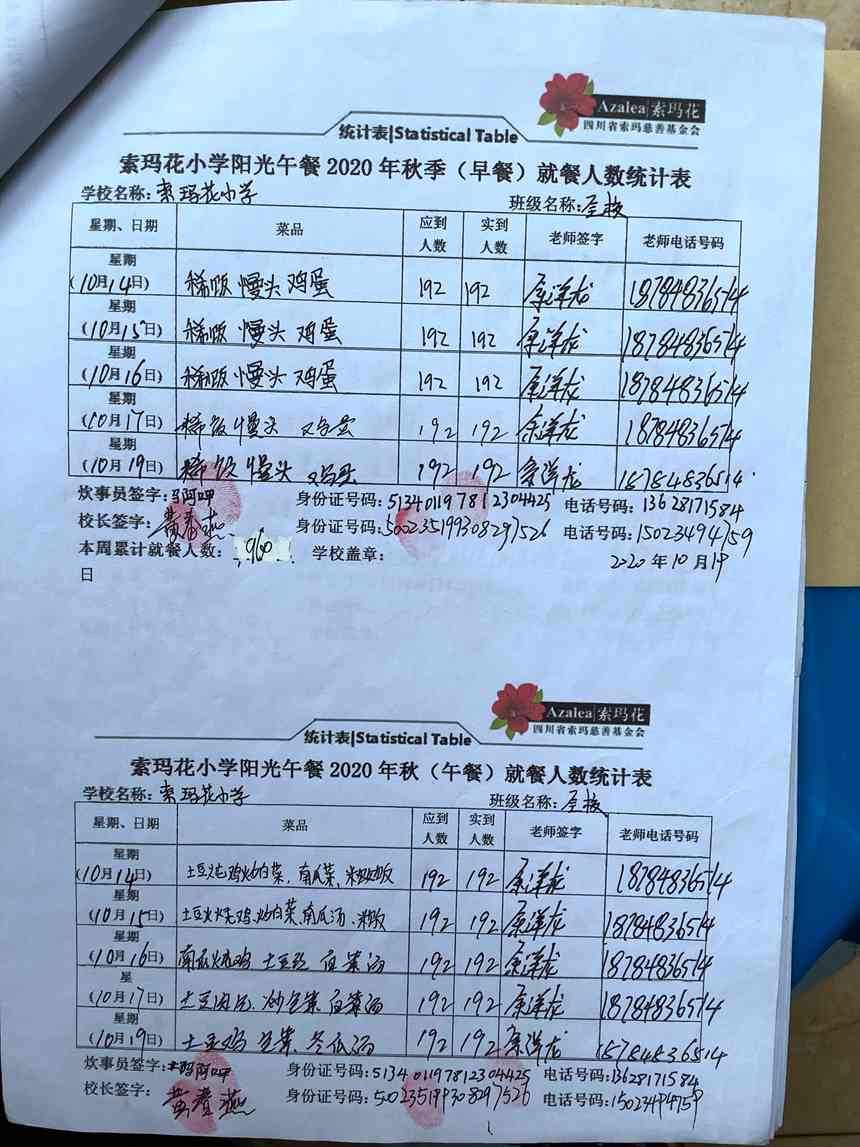 Azalea 索玛花
四川省索玛慈善基金会
统计表|Statistical Table
索玛花小学阳光午餐 2020 年秋季（早餐）就餐人数统计表
学校名称：索玛花小学 班级名称：全校
星期、日期 菜品 应到人数 实到人数 老师签字 老师电话号码
星期
（10月14日） 稀饭 馒头 鸡蛋 192 192 余洋龙 18784836514
星期
（10月15日） 稀饭 馒头 鸡蛋 192 192 余洋龙 18784836514
星期
（10月16日） 稀饭 馒头 鸡蛋 192 192 余洋龙 18784836514
星期
（10月17日） 稀饭 馒头 鸡蛋 192 192 余洋龙 18784836514
星期
（10月19日） 稀饭 馒头 鸡蛋 192 192 余洋龙 18784836514
炊事员签字：马阿呷 身份证号码：513401197812304425 电话号码：13628171584
校长签字： 身份证号码：500235199308297526 电话号码：15023494759
本周累计就餐人数：960 学校盖章： 2020年10月19
日
Azalea 索玛花
四川省索玛慈善基金会
统计表|Statistical Table
索玛花小学阳光午餐 2020 年秋（午餐）就餐人数统计表
学校名称：索玛花小学 班级名称：全校
星期、日期 菜品 应到人数 实到人数 老师签字 老师电话号码
星期
（10月14日） 土豆炖鸡炒白菜、南瓜菜、米饭 192 192 余洋龙 18784836514
星期
（10月15日） 土豆烧鸡、炒白菜、南瓜汤、米饭 192 192 余洋龙 18784836514
星期
（10月16日） 南瓜烧鸡 土豆丝 白菜汤 192 192 余洋龙 18784836514
星
（10月17日） 土豆 白菜汤 192 192 余洋龙 18784836514
星期
（10月19日） 土豆鸡 冬瓜汤 192 192 余洋龙 18784836514
炊事员签字：马阿呷 身份证号码：513401197812304425 电话号码：13628171584
校长签字： 身份证号码：500235199308297526 电话号码：15023494759